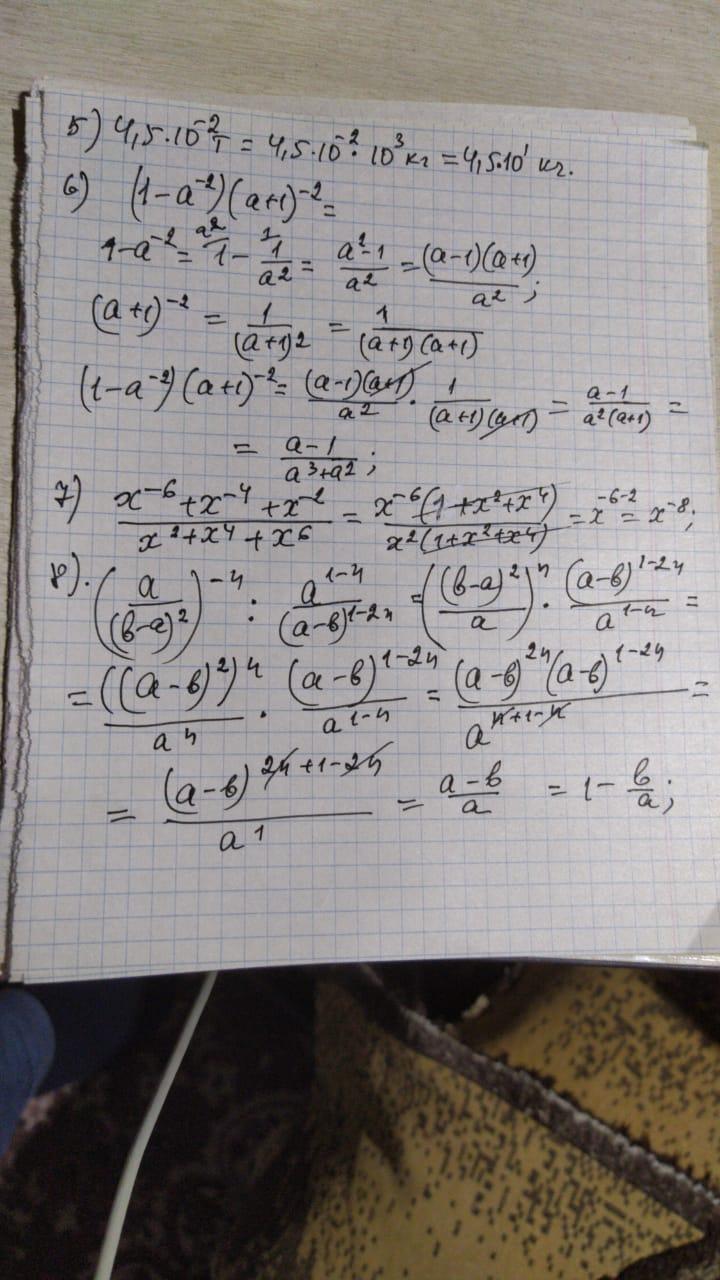 5) 4,5·10⁻²т = 4,5·10⁻²·10³кг = 4,5·10¹ кг.
6) (1-a⁻²)(a+1)⁻² =
1-a⁻² = 1 - 1/a² = (a²-1)/a² = (a-1)(a+1)/a²;
(a+1)⁻² = 1/(a+1)2 = 1/(a+1)(a+1)
(1-a⁻²)(a+1)⁻² = (a-1)(a+1)/a² · 1/(a+1)(a+1) = (a-1)/a²(a+1) =
= (a-1)/(a³+a²);
7) (x⁻⁶+x⁻⁴+x⁻²)/(x²+x⁴+x⁶) = x⁻⁶(1+x²+x⁴)/x²(1+x²+x⁴) = x⁻⁶⁻² = x⁻⁸;
8). (a/(в-a)²)^(-n) : a^(1-n)/(a-в)^(1-2n) = ((в-a)²/a)^n · (a-в)^(1-2n)/a^(1-n) =
= ((a-в)²)^n/a^n · (a-в)^(1-2n)/a^(1-n) = (a-в)^(2n)(a-в)^(1-2n)/a^(n+1-n) =
= (a-в)^(2n+1-2n)/a¹ = (a-в)/a = 1 - в/a;